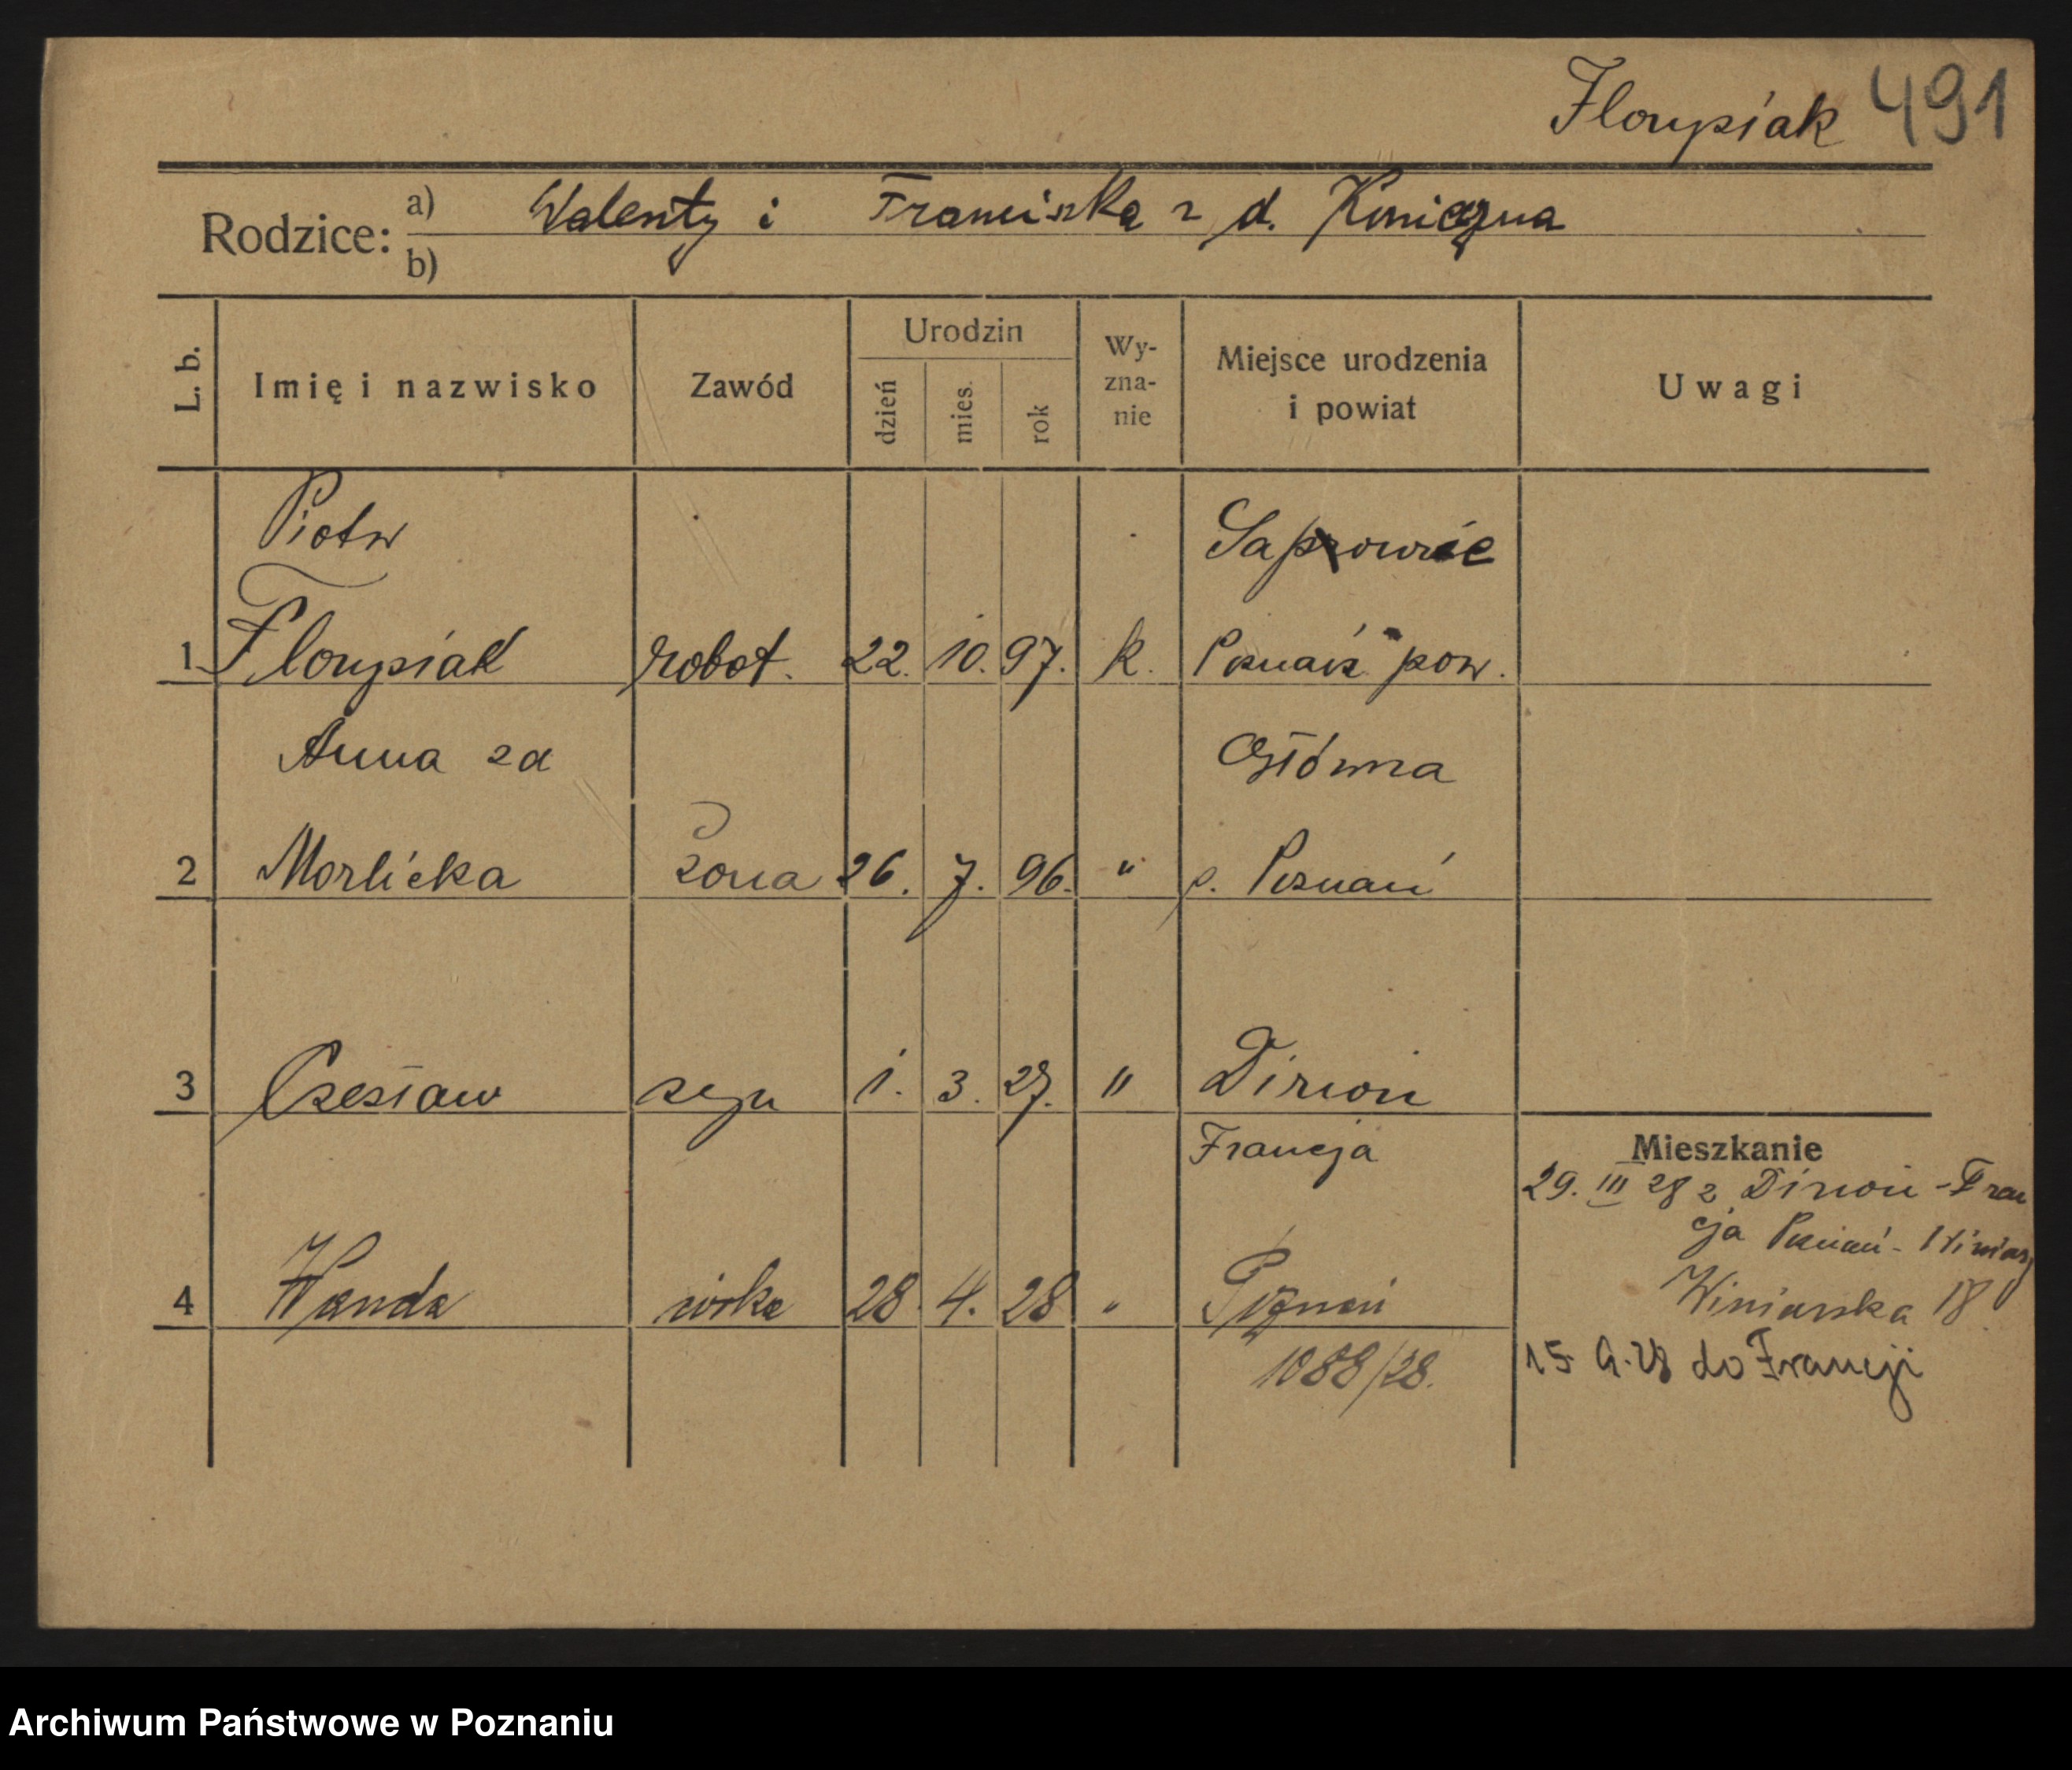 Florysiak 491
Rodzice: a) Walenty i Franciszka z d. Konieczna
b)
L. b. Imię i nazwisko Zawód Urodzin dzień mies. rok Wy-zna-nie Miejsce urodzenia i powiat Uwagi
Piotr
1 Florysiak robot. 22. 10. 97. k. Poznań pow.
Anna za Główna
2 Morlicka żona 26. 7. 96. " p. Poznań
3 Czesław syn 1. 3. 27. "
Francja
Mieszkanie
29. III 28 z - Fran
cja Poznań - Winiary
4 Wanda córka 28. 4. 28 " Poznań
Winiarska 18
1088/28.
15. 9. 28 do Francji
Archiwum Państwowe w Poznaniu